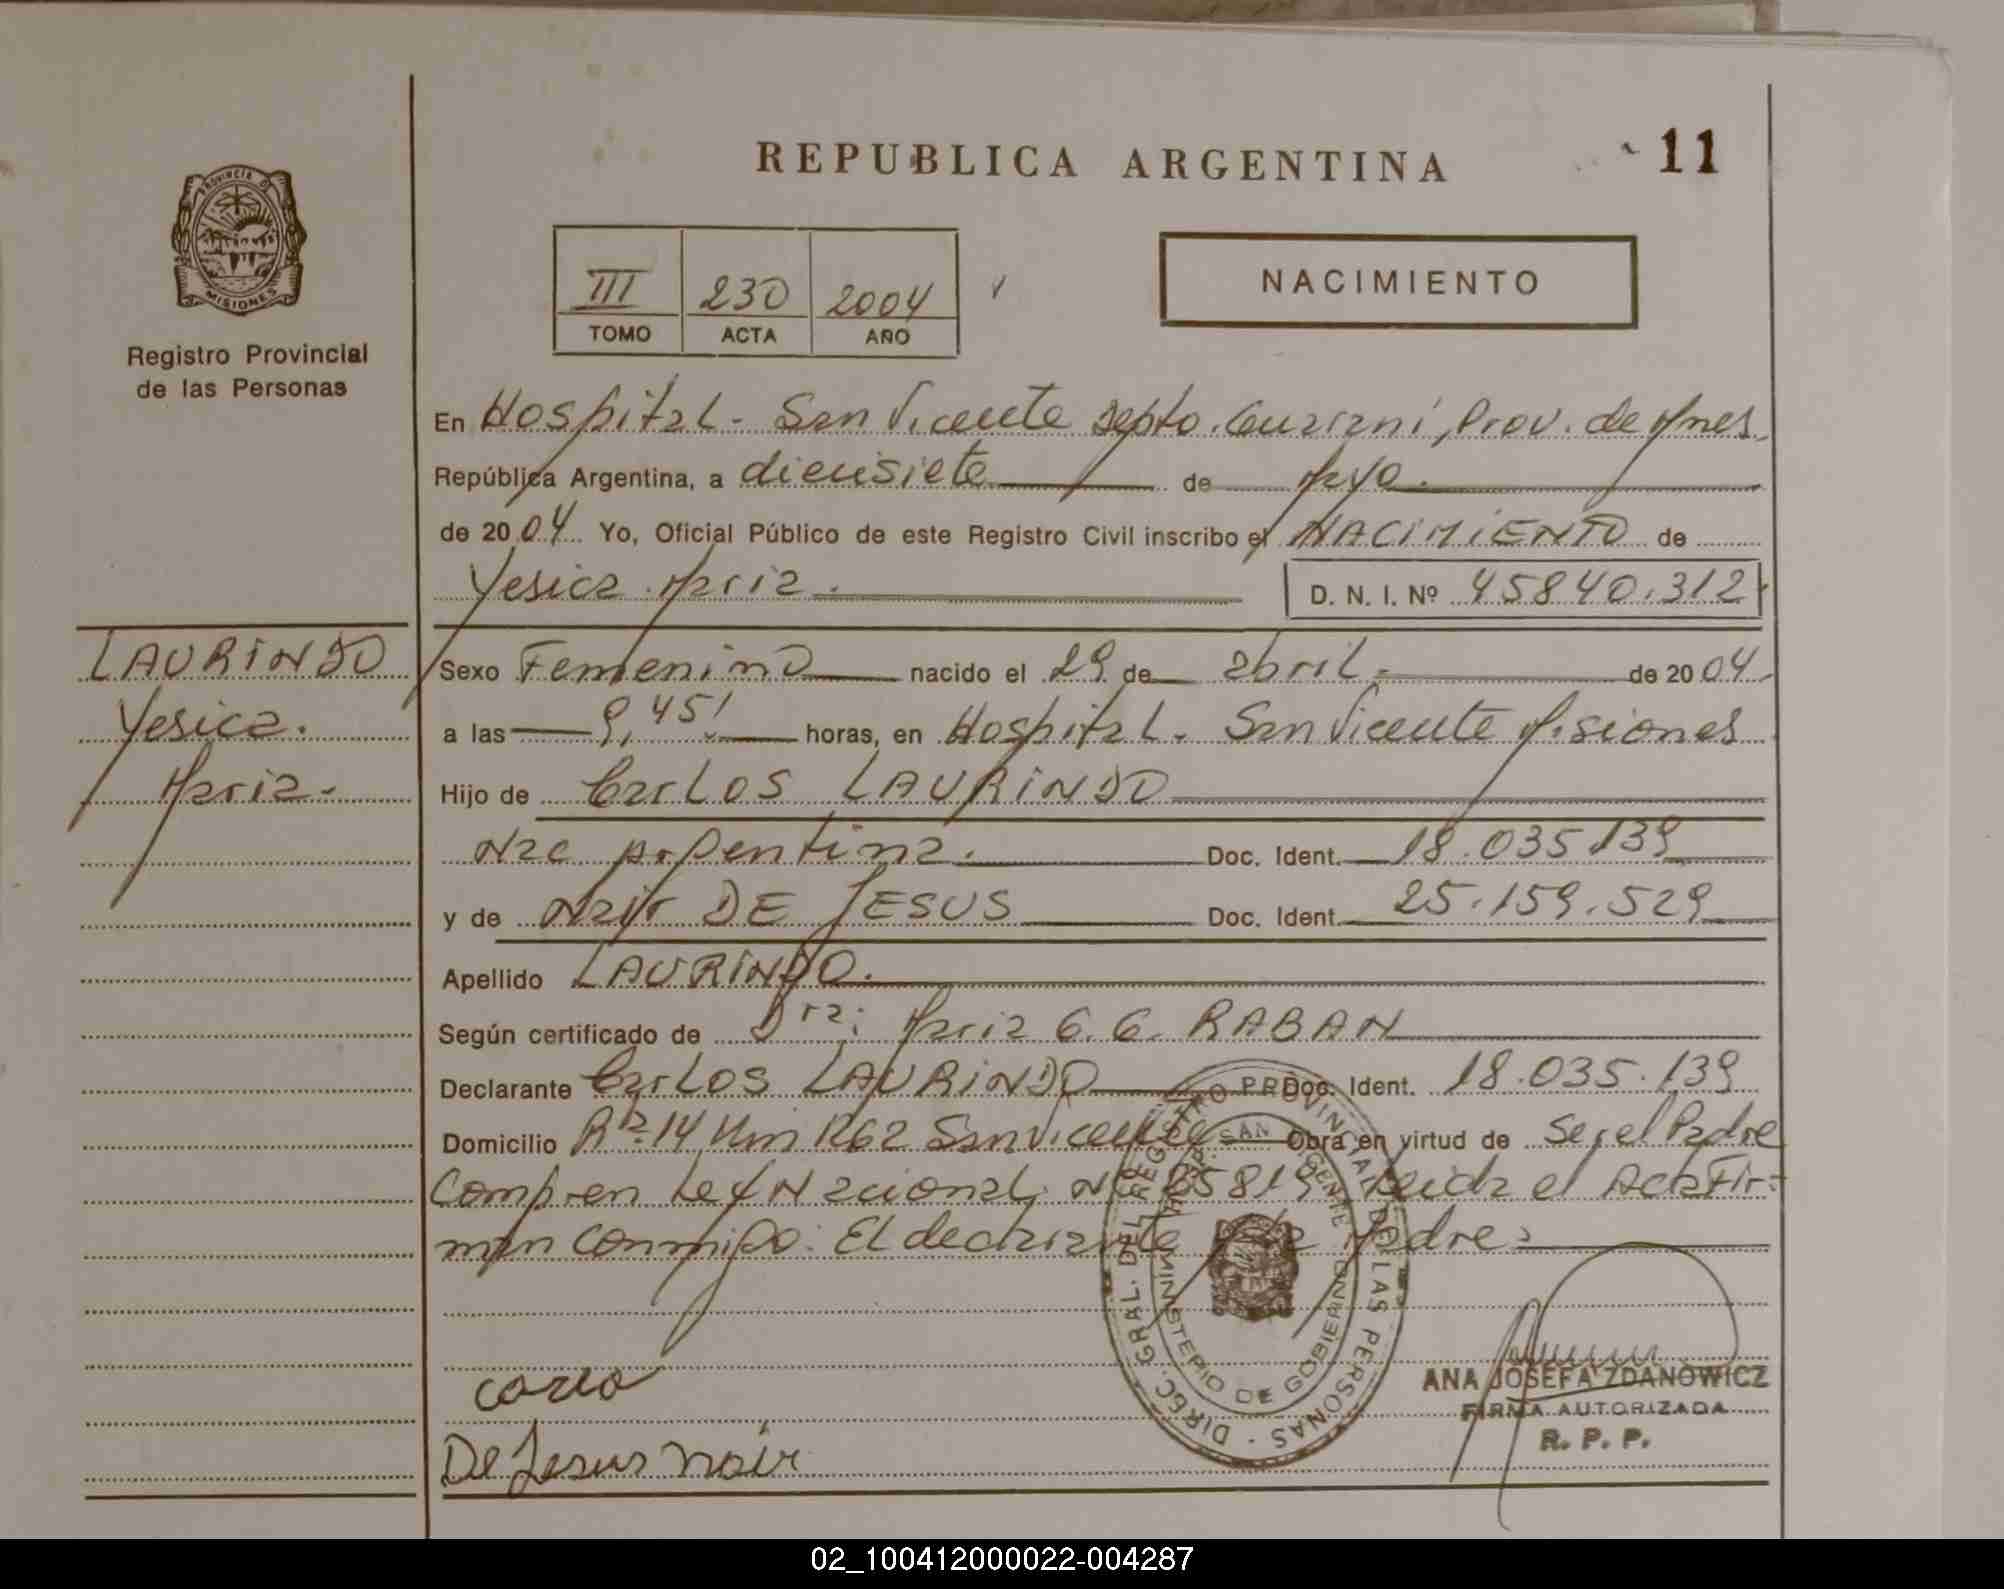 REPUBLICA ARGENTINA
11
PROVINCIA D
MISIONES
Registro Provincial
de las Personas
III 230 2004
TOMO ACTA AÑO
NACIMIENTO
En Hospital - San Vicente Depto. Guaraní, Prov. de Mnes.
República Argentina, a diecisiete de Mayo.
de 2004 Yo, Oficial Público de este Registro Civil inscribo el NACIMIENTO de
Yesica Maria. D. N. I. Nº 45840.312
LAURINDO
Yesica.
Maria.
Sexo Femenino nacido el 29 de abril. de 2004.
a las 9,45' horas, en Hospital - San Vicente Misiones
Hijo de Carlos LAURINDO
Nac Argentina. Doc. Ident. 18.035.139
y de Nair DE JESUS Doc. Ident. 25.159.529
Apellido LAURINDO.
Según certificado de Dra: Maria G. G. RABAN
Declarante Carlos LAURINDO Doc. Ident. 18.035.139
Domicilio Rta 14 Km 1262 San Vicente Obra en virtud de Ser el Padre
Compren Ley Nacional Nº 25819 Leida el Acta Fir-
man conmigo: El declarante y la Madre.
DIREC. GRAL. DEL REGISTRO PROVINCIAL DE LAS PERSONAS
SAN VICENTE
MINISTERIO DE GOBIERNO
De Jesus nair
ANA JOSEFA ZDANOWICZ
FIRMA AUTORIZADA
R. P. P.
02_100412000022-004287